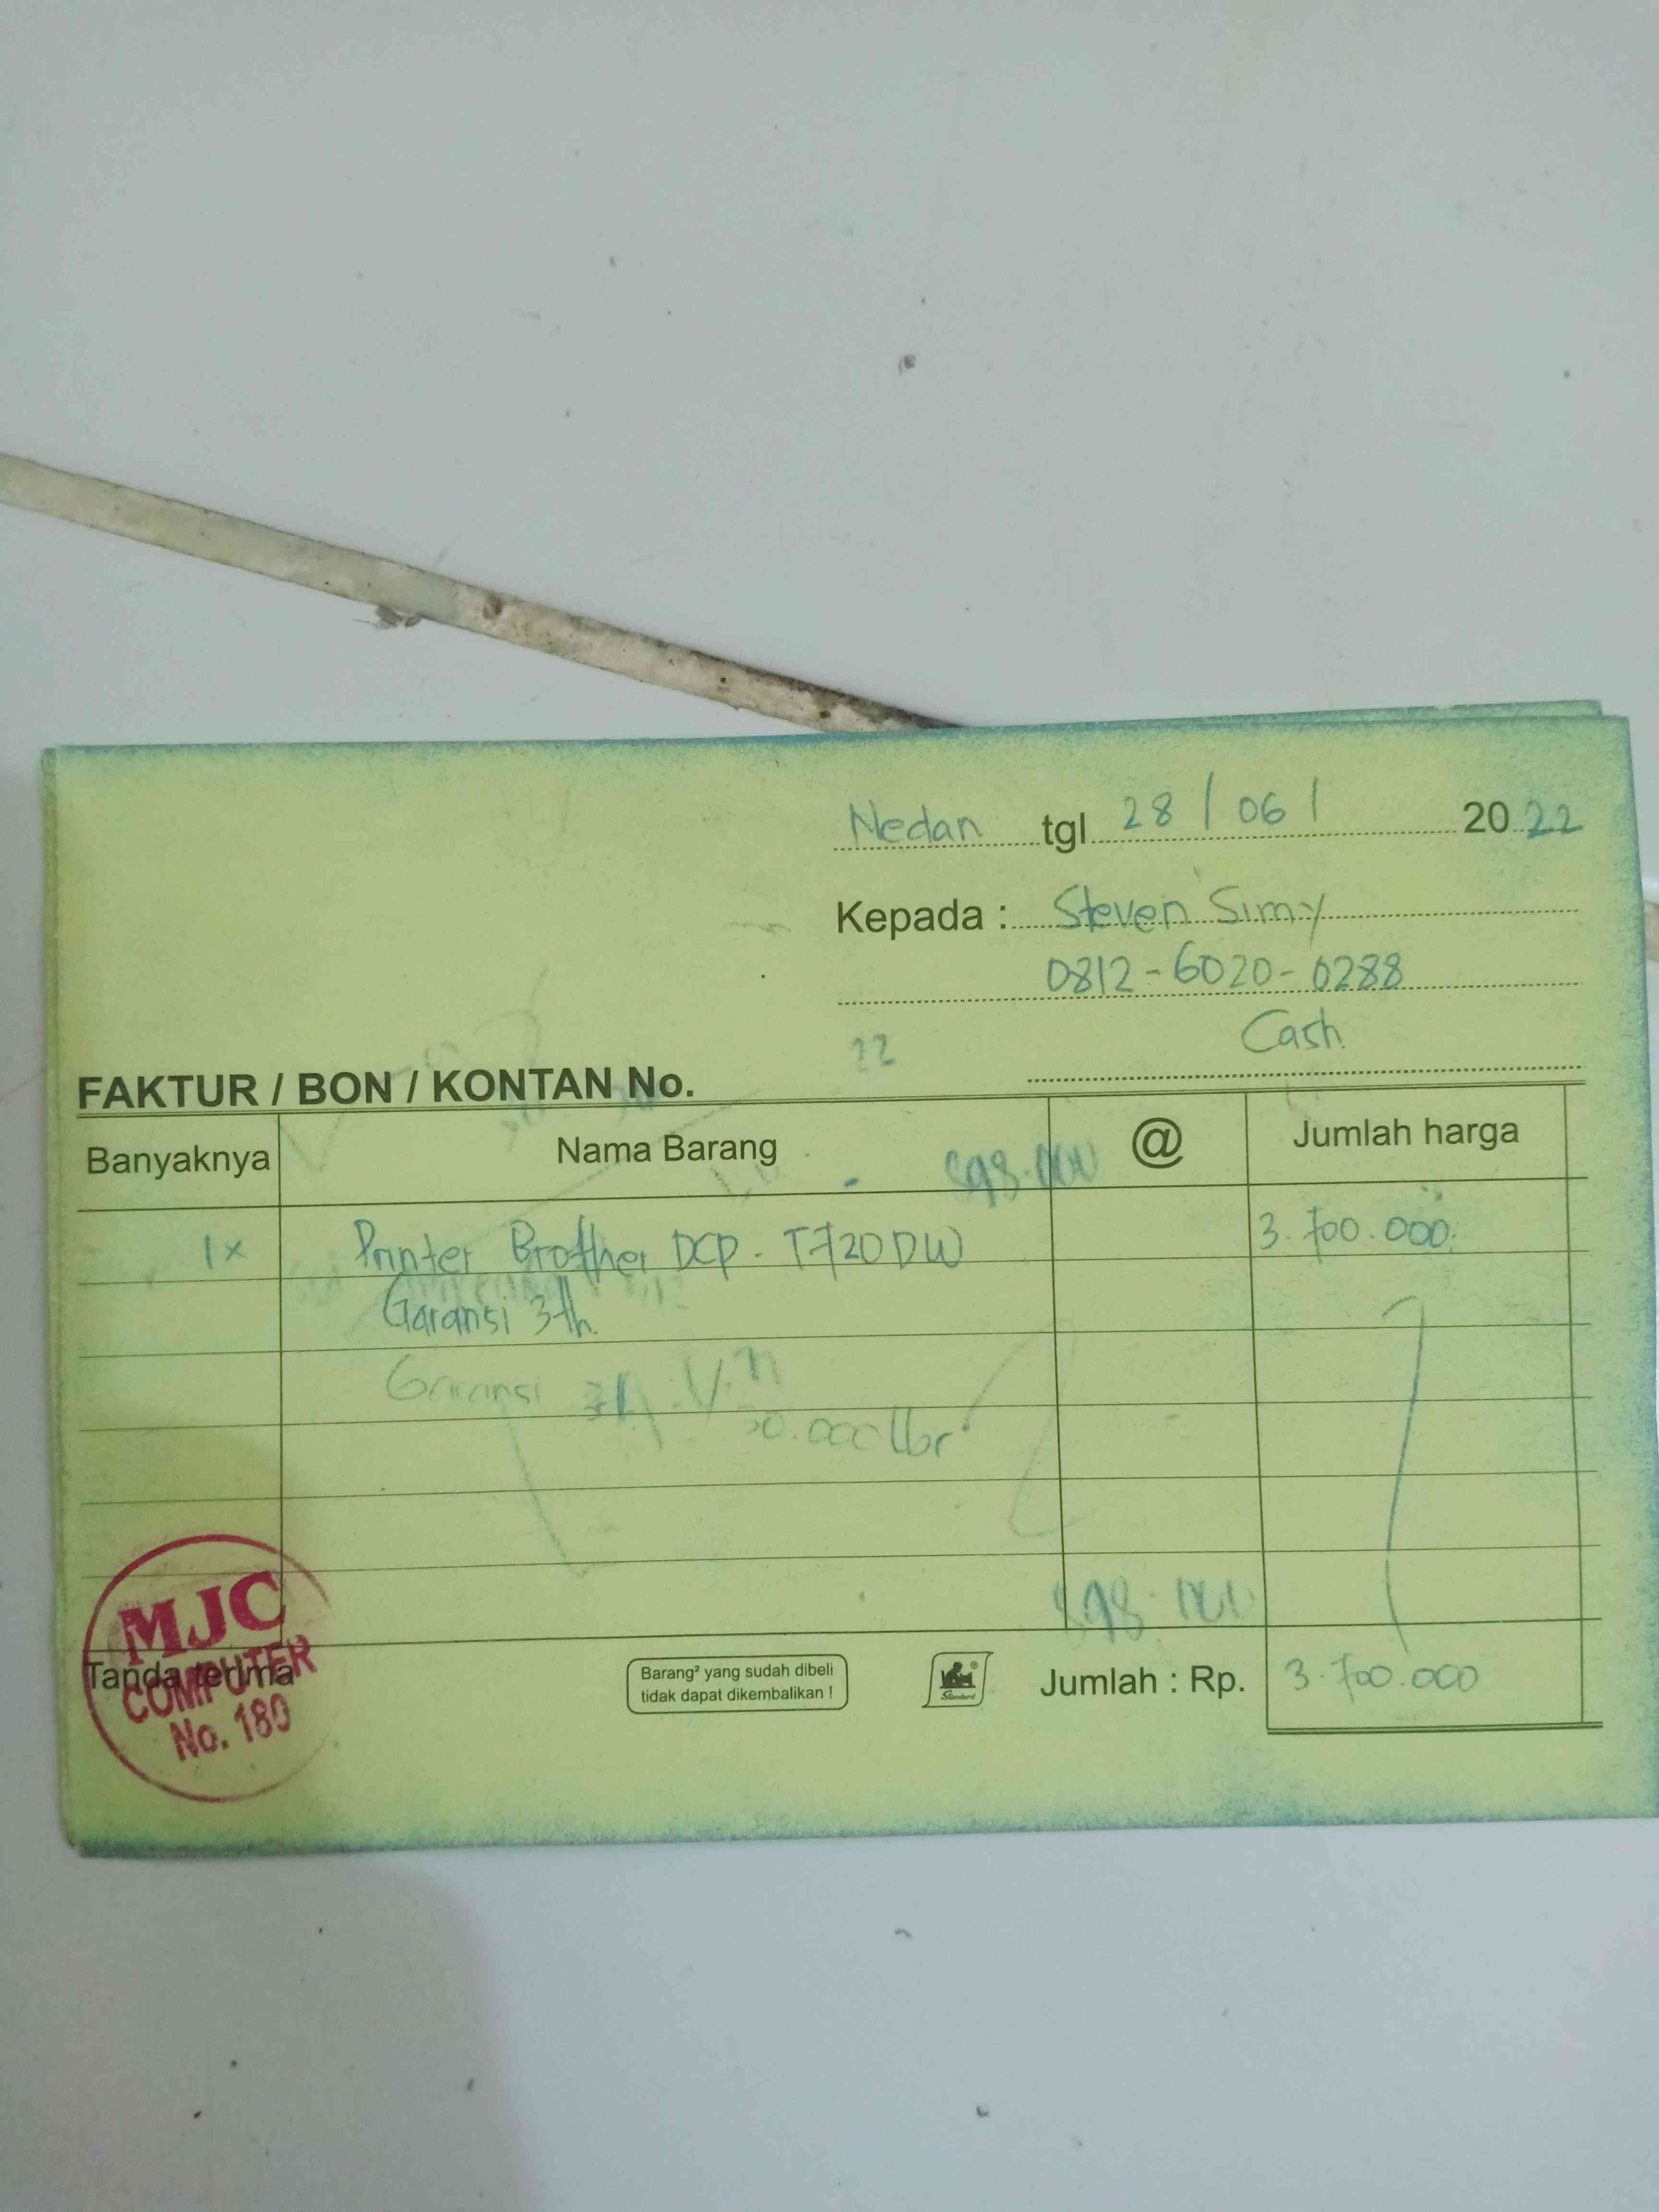 Medan tgl 28 / 06 / 2022
Kepada : Steven Simy
0812-6020-0288
Cash.
FAKTUR / BON / KONTAN No.
Banyaknya Nama Barang @ Jumlah harga
898.000
1x Printer Brother DCP-T720DW 3.700.000.
Garansi 3th.
Garansi
30.000 lbr
898.000
Tanda terima
MJC
COMPUTER
No. 180
Barang² yang sudah dibeli
tidak dapat dikembalikan !
Standard
Jumlah : Rp. 3.700.000